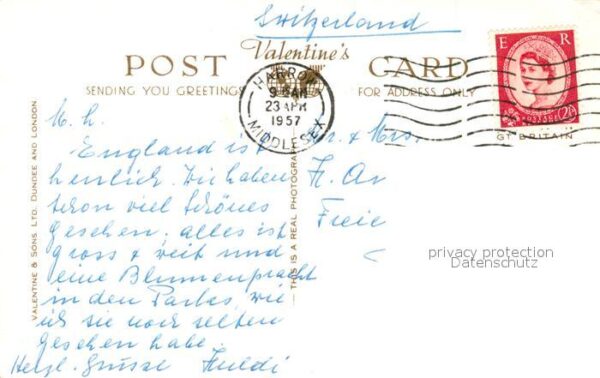 Switzerland
Valentine's
POST CARD
SENDING YOU GREETINGS FOR ADDRESS ONLY
E R
POSTAGE
2½D
GT BRITAIN
HARROW
9 AM
23 APR
1957
MIDDLESEX
M. h.
England ist
herrlich. Wir haben
schon viel schönes
gesehen. alles ist
gross & weit und
eine Blumenpracht
in den Parks, wie
ich sie noch selten
gesehen habe.
Herzl. Grüsse Huldi
& Mrs.
H.
Freie
VALENTINE & SONS, LTD. DUNDEE AND LONDON
THIS IS A REAL PHOTOGRAPH
privacy protection
Datenschutz